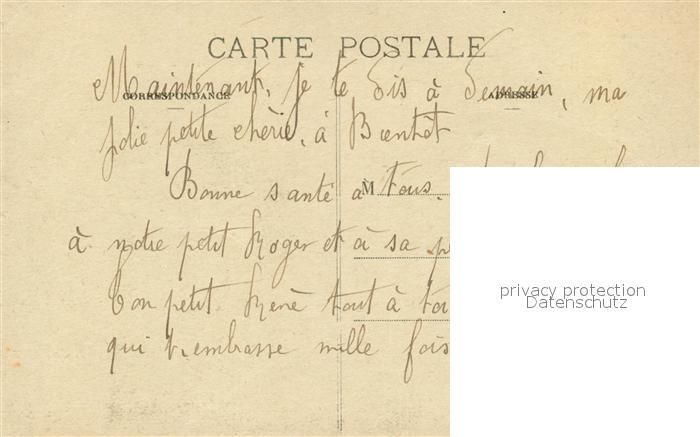 CARTE POSTALE
CORRESPONDANCE
ADRESSE
Maintenant, je te dis à demain, ma
jolie petite chérie, à Bientôt
Bonne santé à tous.
M
à notre petit Roger et à sa
ton petit René tout à toi
qui t'embrasse mille fois
privacy protection
Datenschutz